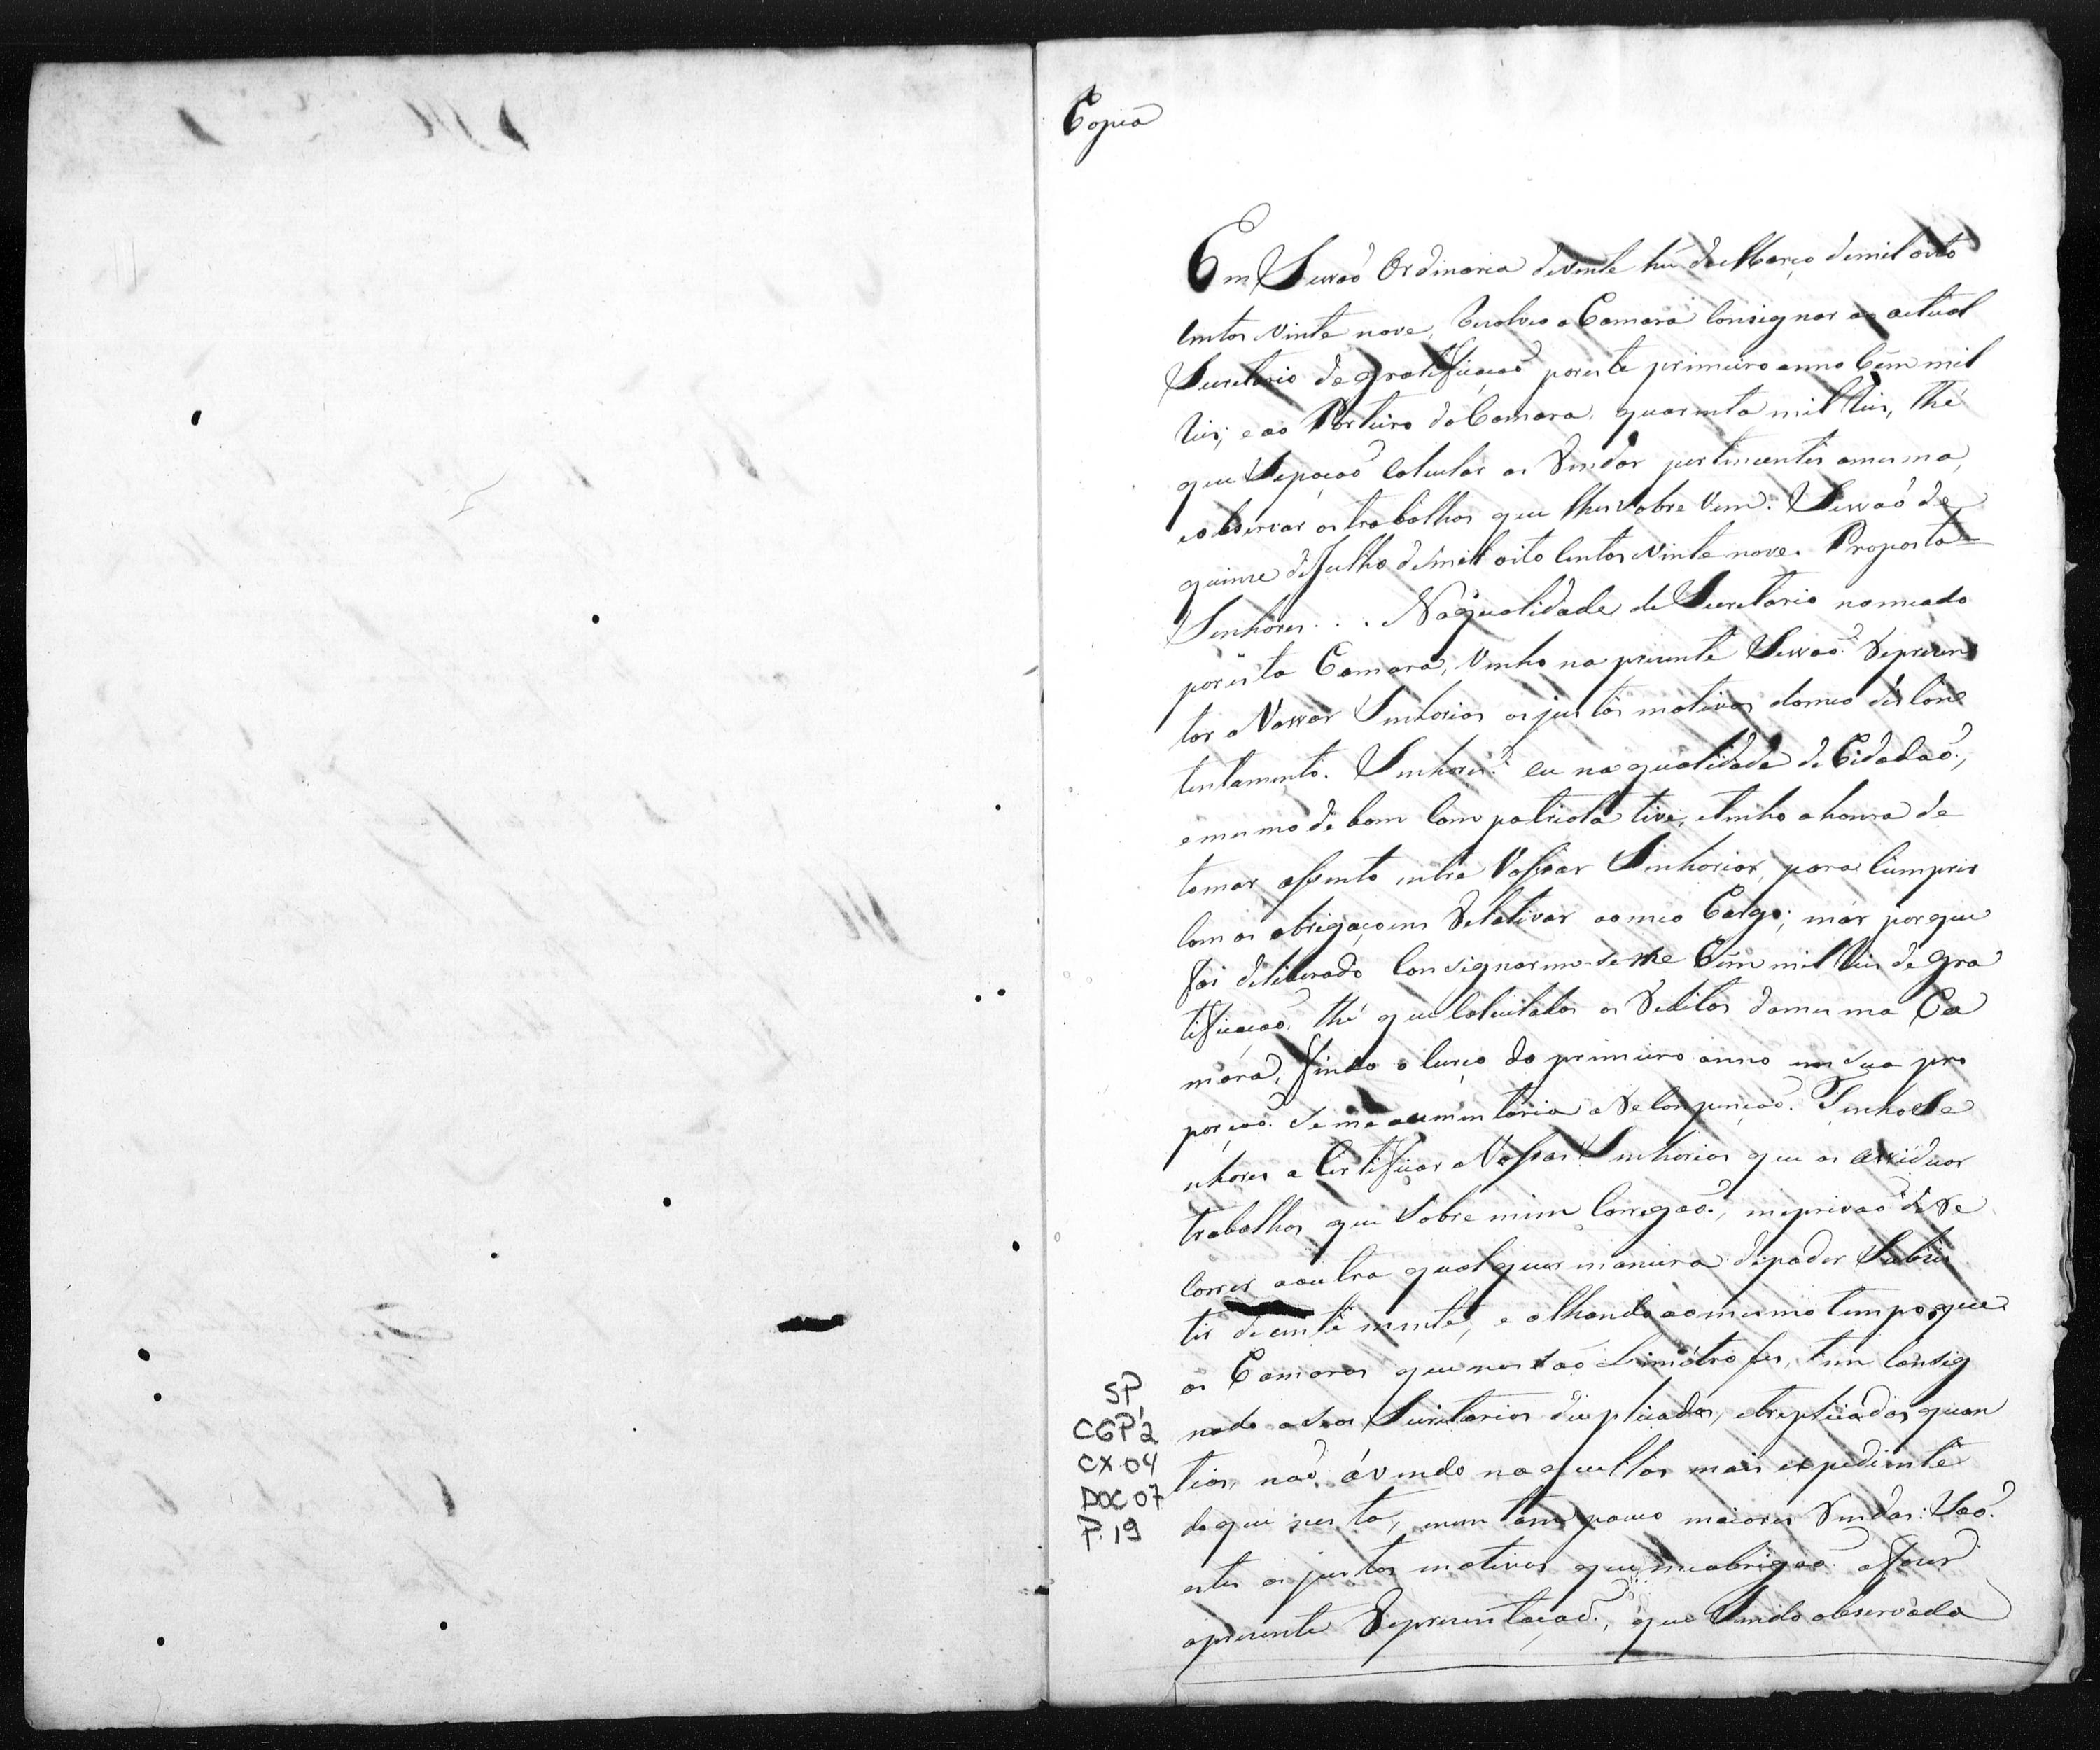 Copia
Em Sessaõ Ordinaria devinte hú de Março demil oito
centos vinte nove, Resolveo a Camara Consignar ao actual
Secretario de gratificaçaõ por este primeiro anno Cem mil
Reis; e ao Porteiro da Camara, quarenta mil Reis, thé
que sepoçaõ Calcular as Rendas pertincentes amesma,
eobservar os trabalhos que lhes sobre vem. Sessaõ de
quinze de Julho demil oito centos vinte nove. Proposta =
Senhores . . . Na qualidade de Secretario nomeado
poresta Camara, venho na prezente Sessaõ Reprezen
tar a Vossas Senhorias os justos motivos domeo discon
tentamento. Senhores: eu na qualidade de Cidadaõ,
emesmo de bom Compatriota tive, etenho a honra de
tomar assento entre Vossas Senhorias, para Cumprir
Com as obrigaçoens Relativas aomeo Cargo; más por que
foi deliberado Consignarem-se-me Cem mil Reis de gra
tificaçaõ, thé que Calculados os Reditos damesma Ca
mára, findo o curço do primeiro anno em sua pro
porçaõ seme aumentaria a Reconpençaõ. Tenho Se
nhores a Certificar a Vossas Senhorias que os assiduos
trabalhos que sobre mim Carregaõ, meprivaõ de Re
correr aoutra qualquer maneira depoder Subsis
tir decente mente, e olhando aomesmo tempo, que
as Camaras que nos saõ Limitrofes, tem Consig
nado a seos Secretarios duplicadas, etreplicadas quan
tias, naõ ávendo naquellas mais expediente
do que nesta, nem tam pouco maiores Rendas: Saõ
estes os justos motivos que meobrigaõ afazer
aprezente Reprezentaçaõ, que Sendo observada
SP
CGP2
CX 04
DOC 07
P. 19